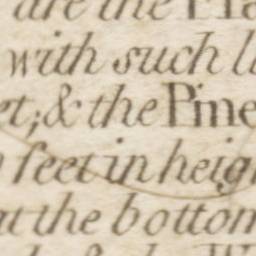 are the
with such
et; & the Pine
feet in heig
at the bottom